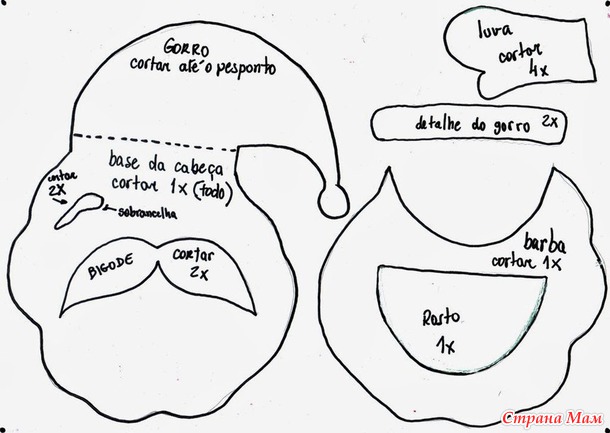 GORRO
cortar até o pesponto
luva
cortar
4x
detalhe do gorro 2x
base da cabeça
cortar 1x (todo)
cortar
2x
sobrancelha
BIGODE
cortar
2x
barba
cortar 1x
Rosto
1x
Страна Мам